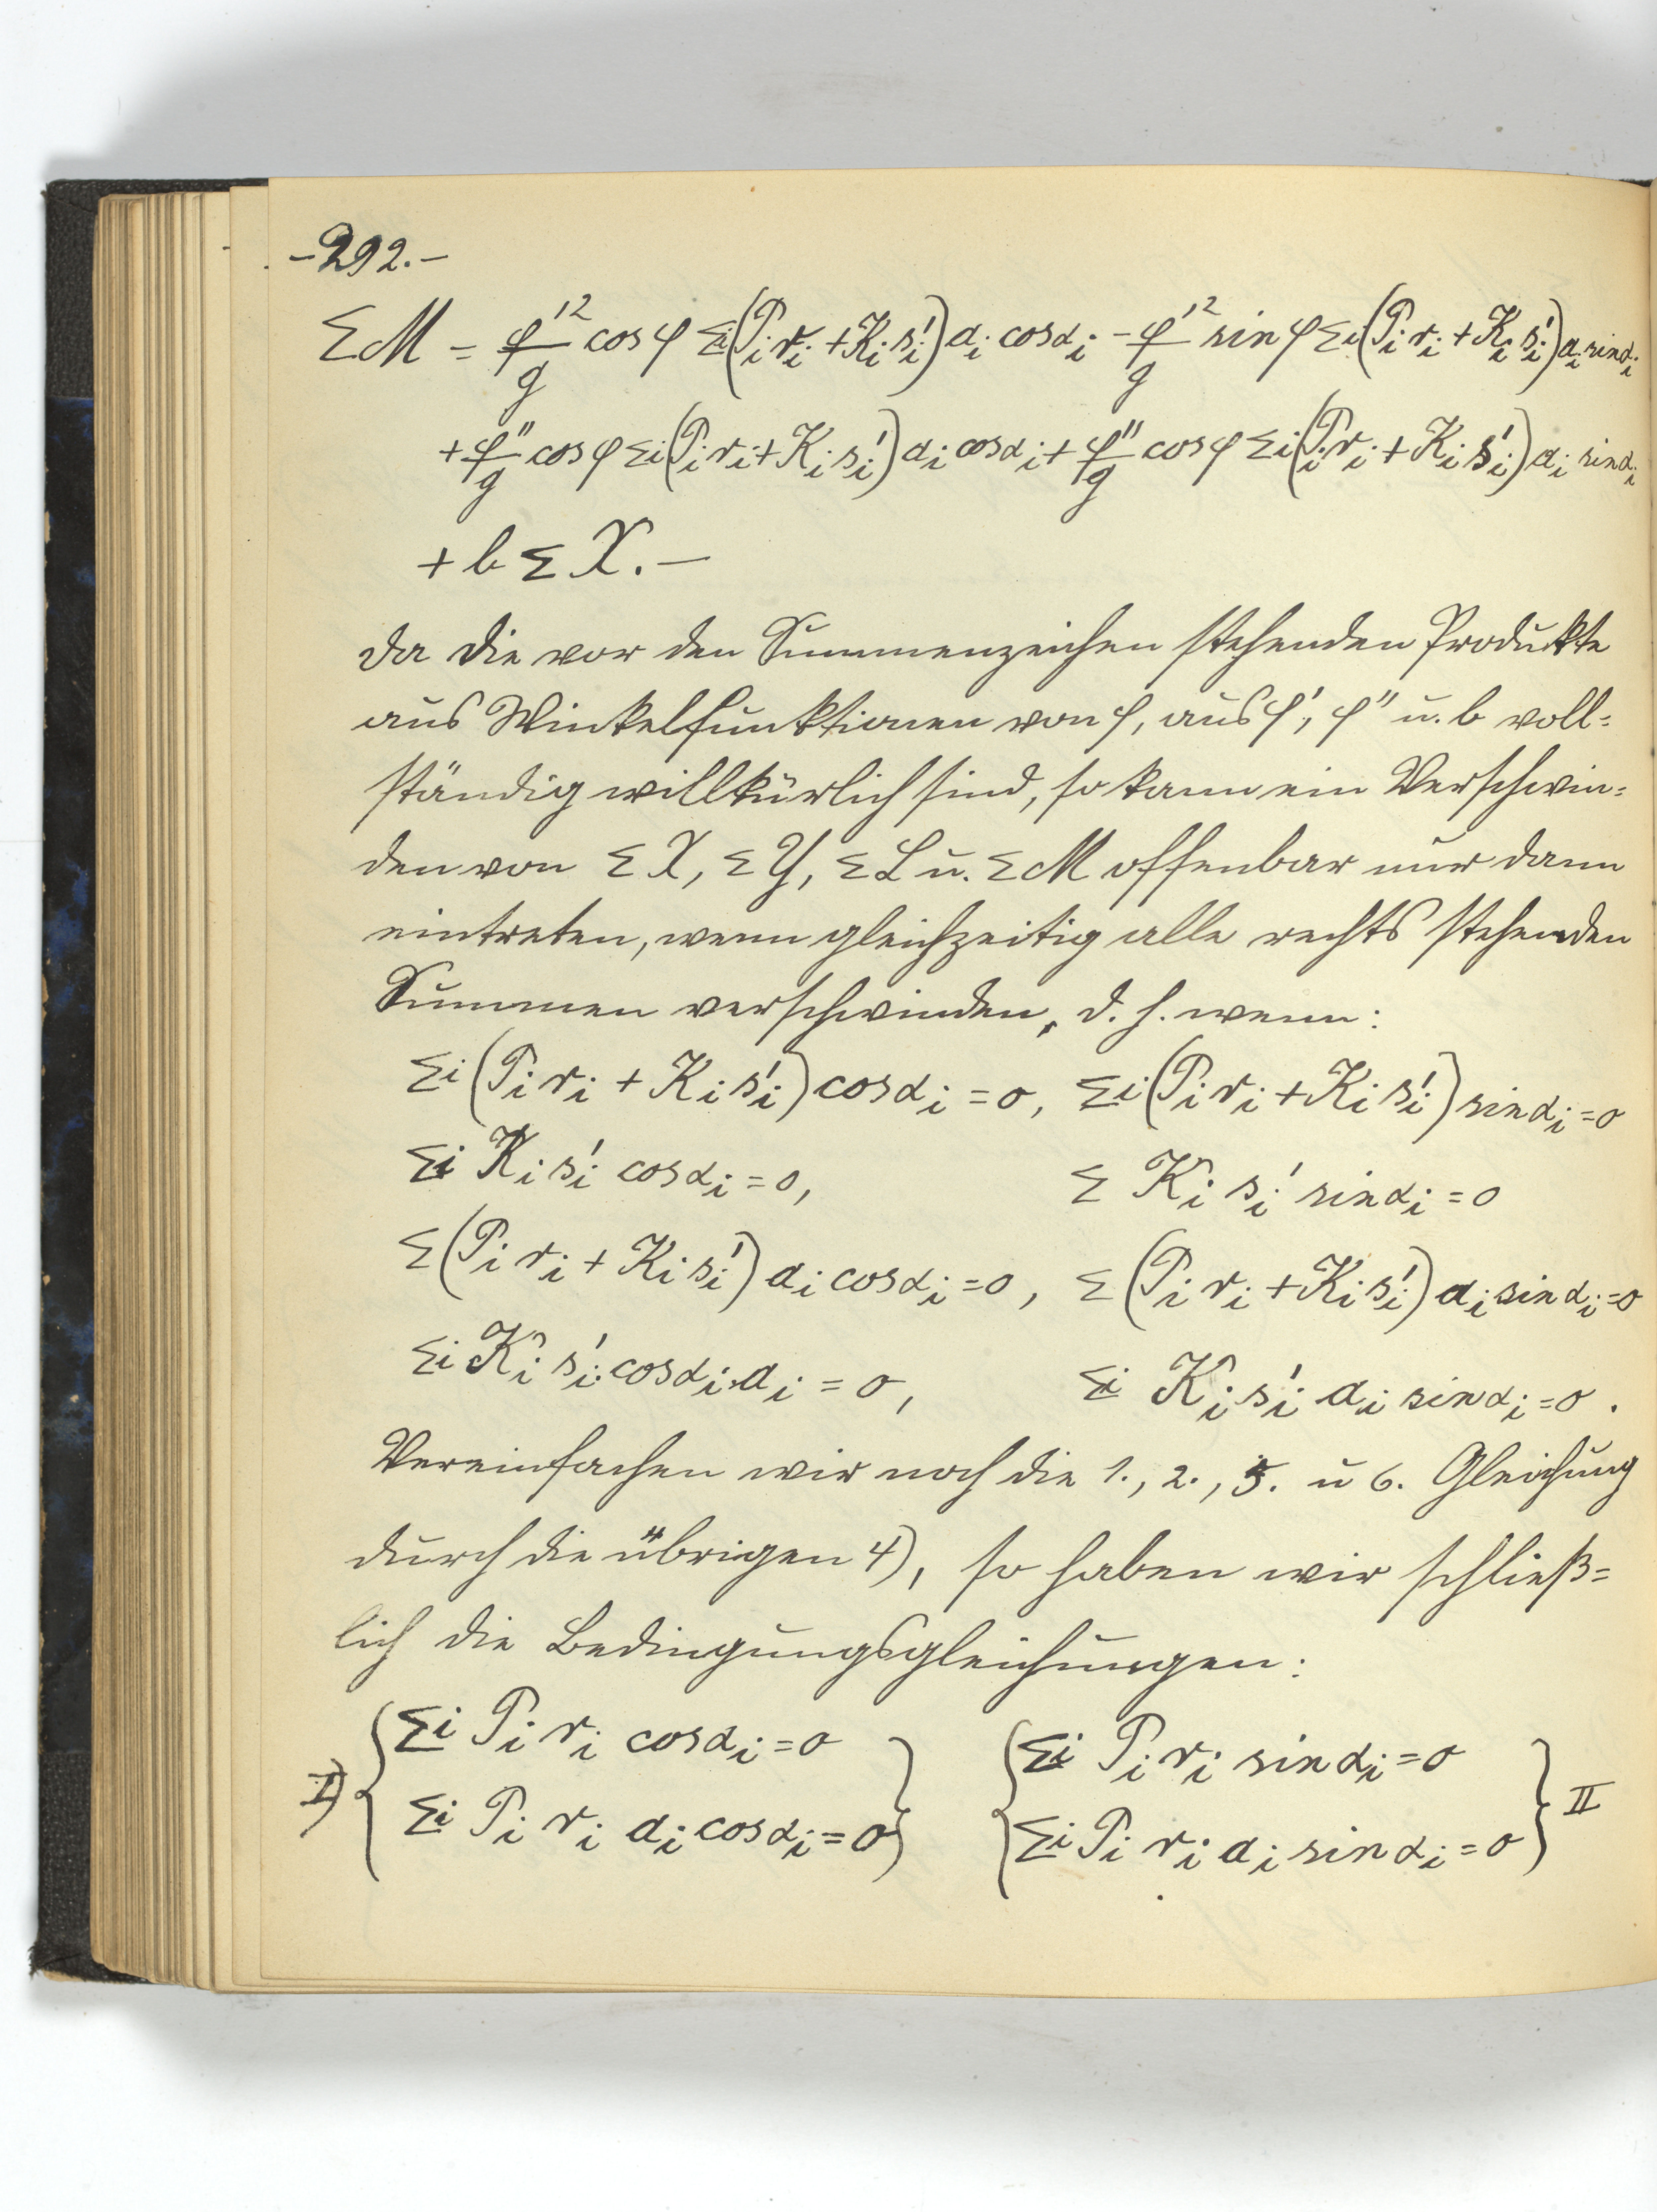 -292.-
ΣM = φ'²/g cos φ Σi(Pi ri + Ki si') ai cos αi - φ'²/g sin φ Σi(Pi ri + Ki si') ai sin αi
+ φ''/g cos φ Σi(Pi ri + Ki si') ai cos αi + φ''/g cos φ Σi(Pi ri + Ki si') ai sin αi
+ b Σ X. —
da die vor den Summenzeichen stehenden Produkte
aus Winkelfunktionen von φ, aus φ', φ'' u. b voll=
ständig willkürlich sind, so kann ein Verschwin=
den von Σ X, Σ Y, Σ L u. Σ M offenbar nur dann
eintreten, wenn gleichzeitig alle rechts stehenden
Summen verschwinden, d. h. wenn:
Σi (Pi ri + Ki si') cos αi = 0, Σi (Pi ri + Ki si') sin αi = 0
Σi Ki si' cos αi = 0, Σ Ki si' sin αi = 0
Σ (Pi ri + Ki si') ai cos αi = 0, Σ (Pi ri + Ki si') ai sin αi = 0
Σi Ki si' cos αi ai = 0, Σi Ki si' ai sin αi = 0.
Vereinfachen wir noch die 1., 2., 5. u 6. Gleichung
durch die übrigen 4), so haben wir schließ=
lich die Bedingungsgleichungen:
I) { Σi Pi ri cos αi = 0 } { Σi Pi ri sin αi = 0 } II
Σi Pi ri ai cos αi = 0 Σi Pi ri ai sin αi = 0